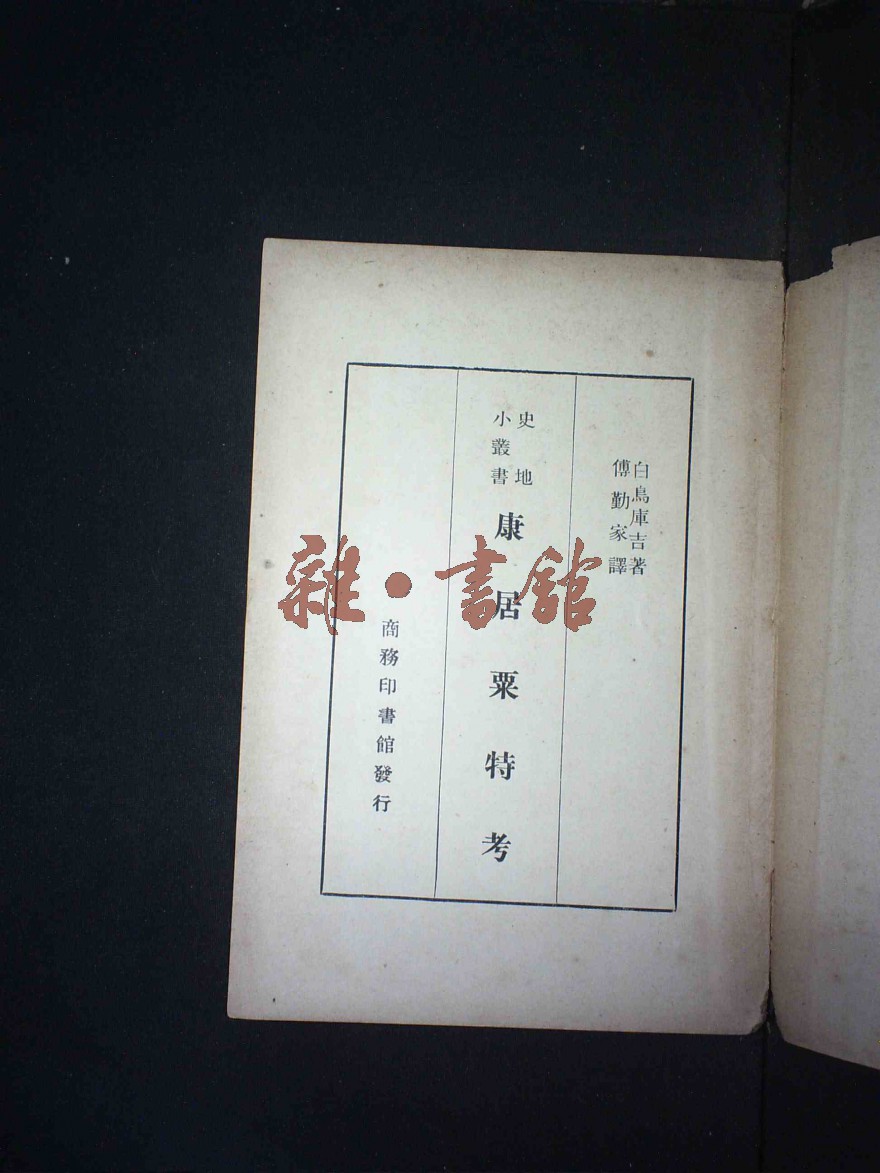 白鳥庫吉著
傅勤家譯
史地
小叢書
康居粟特考
商務印書館發行
雜·書館